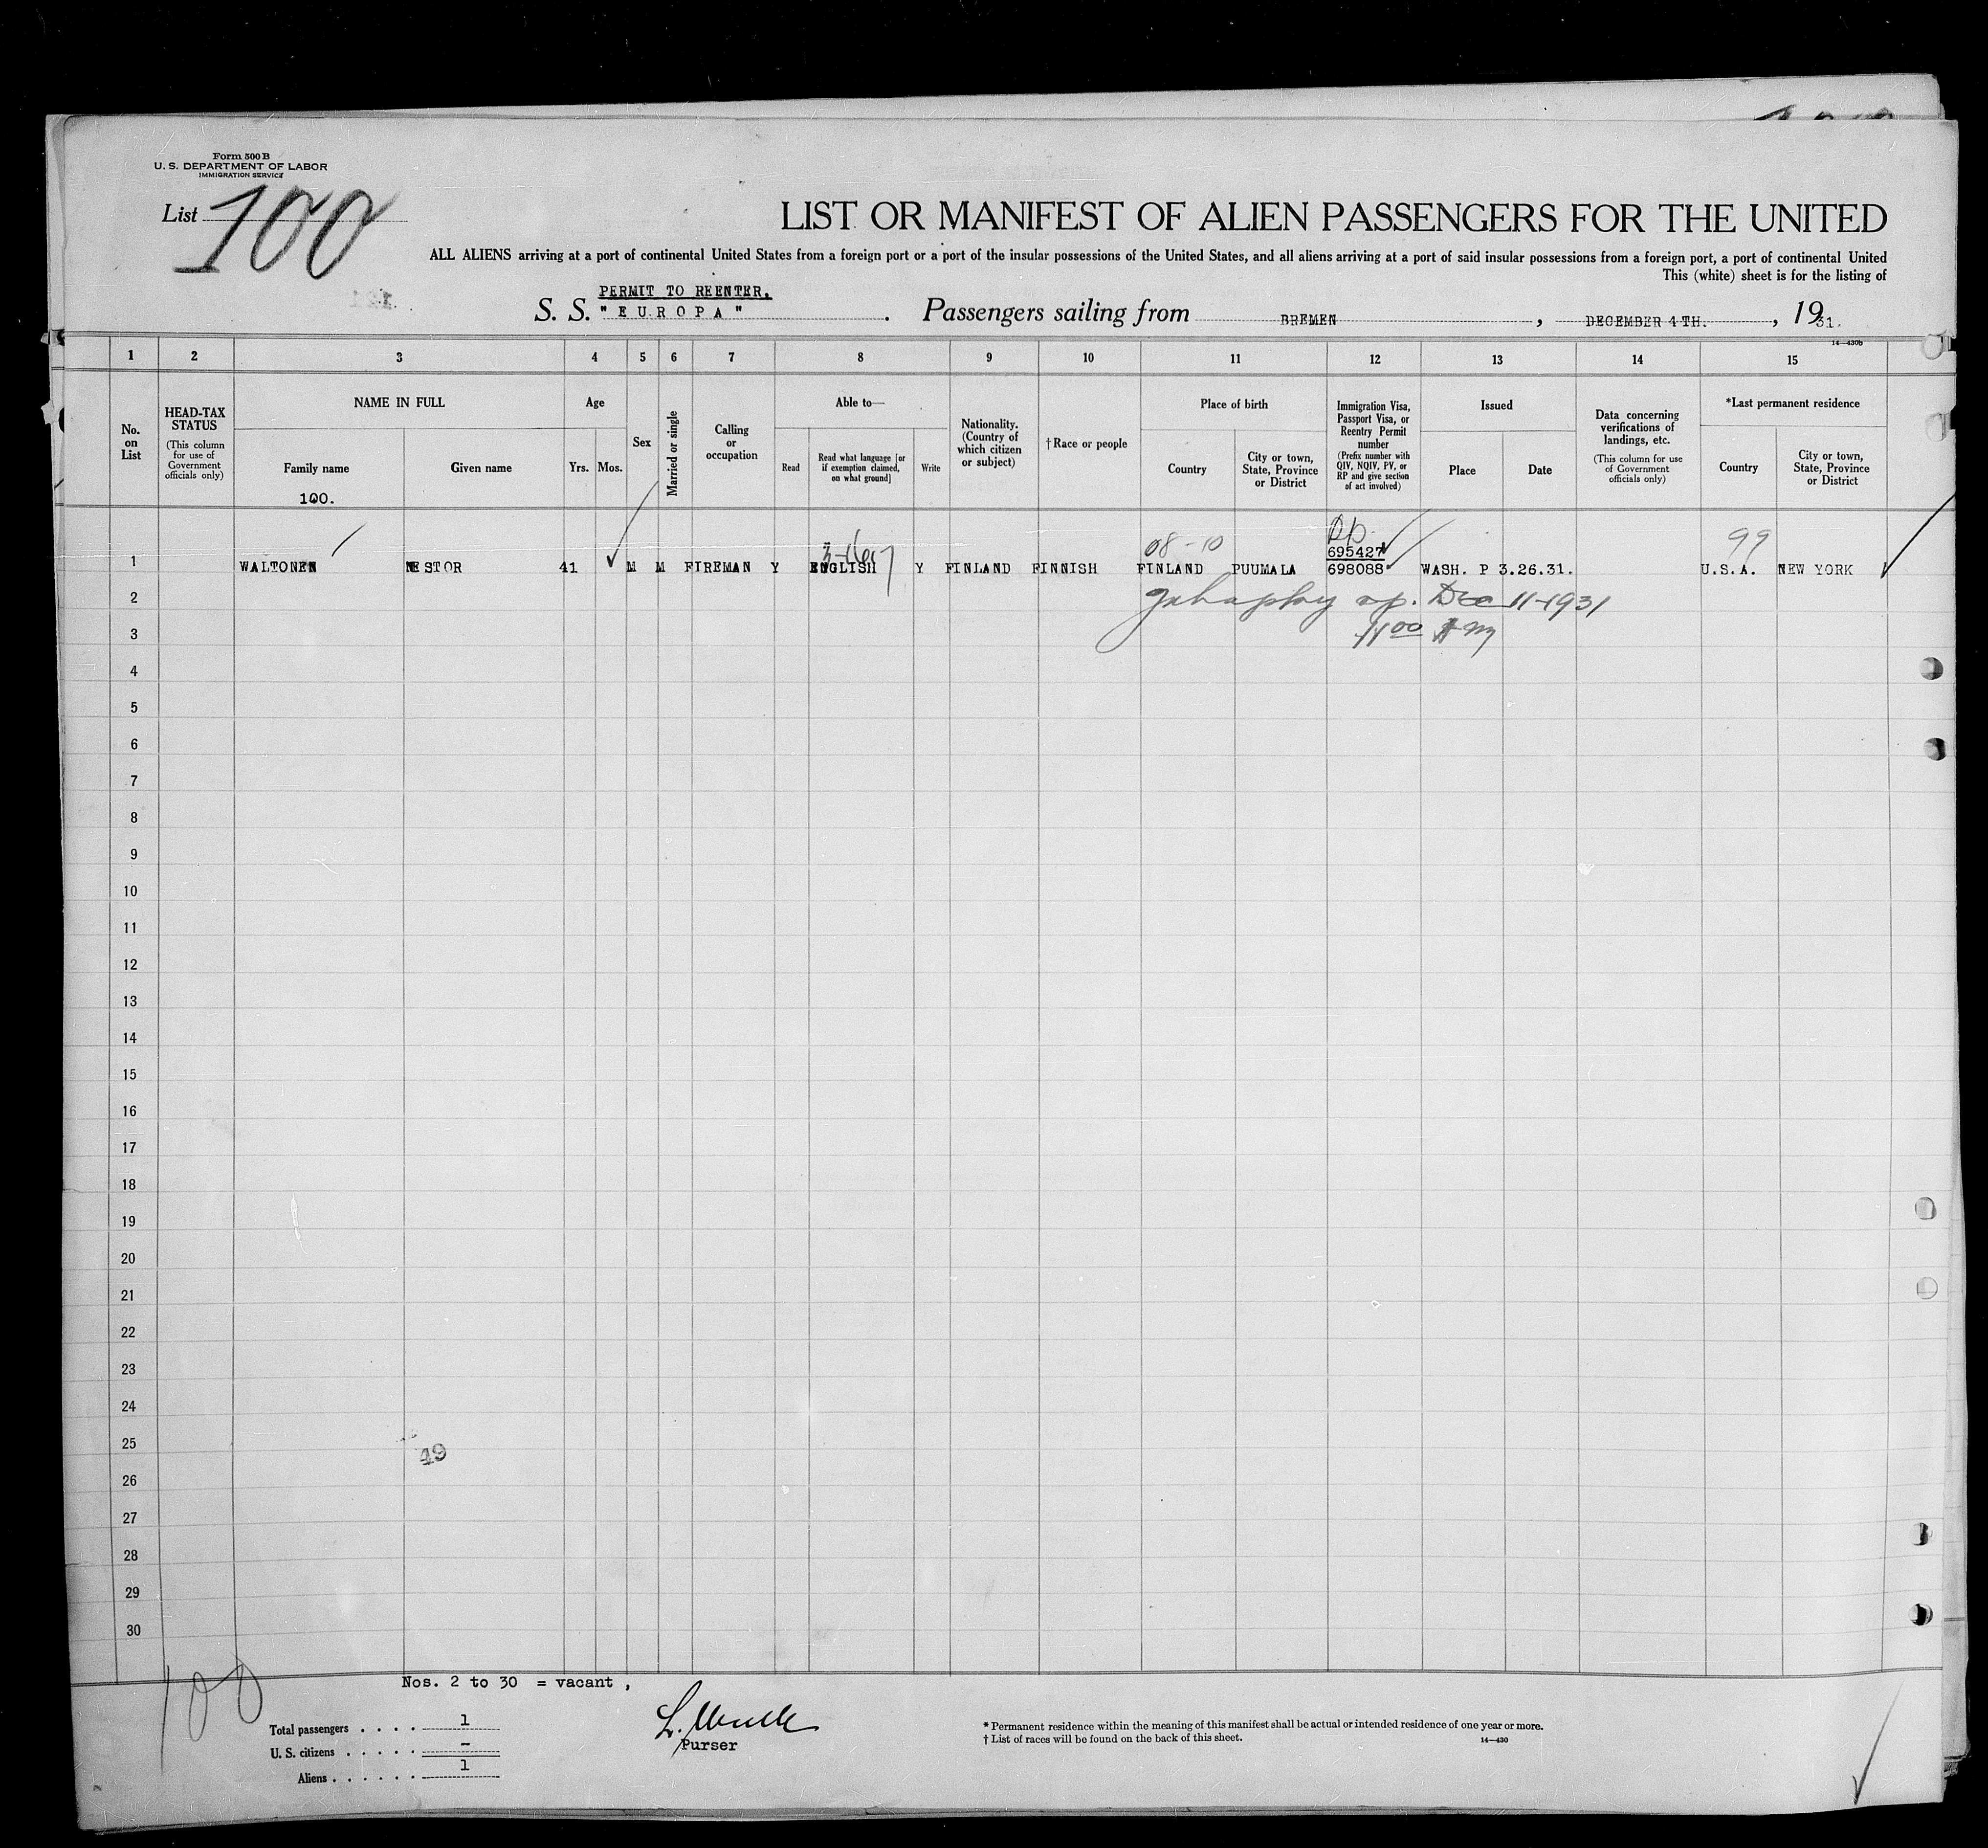 Form 500 B
U. S. DEPARTMENT OF LABOR
IMMIGRATION SERVICE
List 100
LIST OR MANIFEST OF ALIEN PASSENGERS FOR THE UNITED
ALL ALIENS arriving at a port of continental United States from a foreign port or a port of the insular possessions of the United States, and all aliens arriving at a port of said insular possessions from a foreign port, a port of continental United
This (white) sheet is for the listing of
PERMIT TO REENTER.
S. S. "EUROPA". Passengers sailing from BREMEN, DECEMBER 4TH., 1931.
14—430B
1 2 3 4 5 6 7 8 9 10 11 12 13 14 15
No. on List
HEAD-TAX STATUS (This column for use of Government officials only)
NAME IN FULL
Family name
Given name
100.
Age
Yrs. Mos.
Sex
Married or single
Calling or occupation
Able to—
Read
Read what language [or if exemption claimed, on what ground]
Write
Nationality. (Country of which citizen or subject)
†Race or people
Place of birth
Country
City or town, State, Province or District
Immigration Visa, Passport Visa, or Reentry Permit number (Prefix number with QIV, NQIV, PV, or RP and give section of act involved)
Issued
Place
Date
Data concerning verifications of landings, etc. (This column for use of Government officials only)
*Last permanent residence
Country
City or town, State, Province or District
08-10
99
695427
1 WALTONEN NESTOR 41 M M FIREMAN Y ENGLISH Y FINLAND FINNISH FINLAND PUUMALA 698088 WASH. P 3.26.31. U.S.A. NEW YORK
2 Dec 11-1931
3 11 00 AM
4
5
6
7
8
9
10
11
12
13
14
15
16
17
18
19
20
21
22
23
24
25
49
26
27
28
29
30
100
Nos. 2 to 30 = vacant,
Total passengers . . . . 1
U. S. citizens . . . . . –
Aliens . . . . . . 1
Purser
* Permanent residence within the meaning of this manifest shall be actual or intended residence of one year or more.
† List of races will be found on the back of this sheet.
14—430